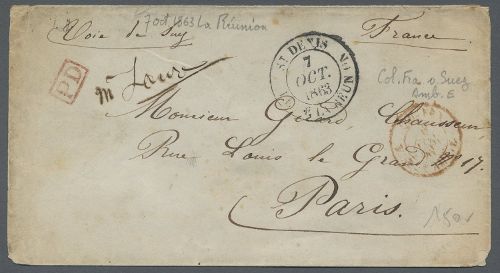 7 oct 1863 La Réunion
Voie de Suez
France
PD
ST DENIS
7
OCT.
1863
LA RÉUNION
Col. Fra. v. Suez
Amb. E
Monsieur Gérard, Chausseur
Rue Louis le Grand No 17.
Paris.